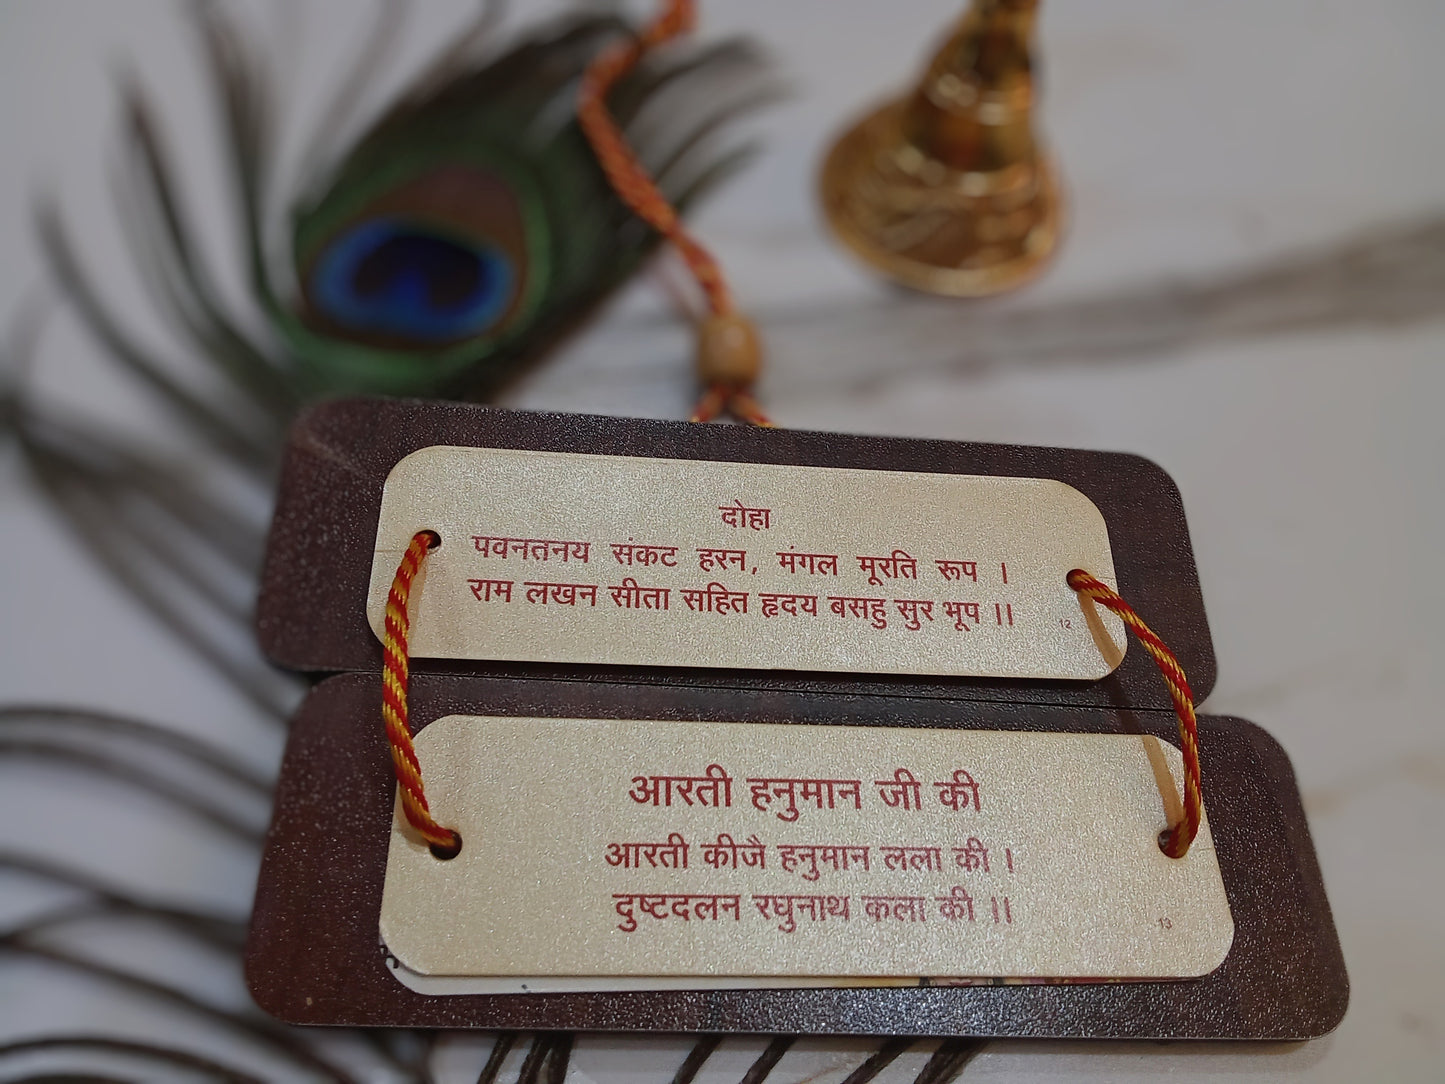 दोहा
पवनतनय संकट हरन, मंगल मूरति रूप ।
राम लखन सीता सहित हृदय बसहु सुर भूप ।।
12
आरती हनुमान जी की
आरती कीजै हनुमान लला की ।
दुष्टदलन रघुनाथ कला की ।।
13